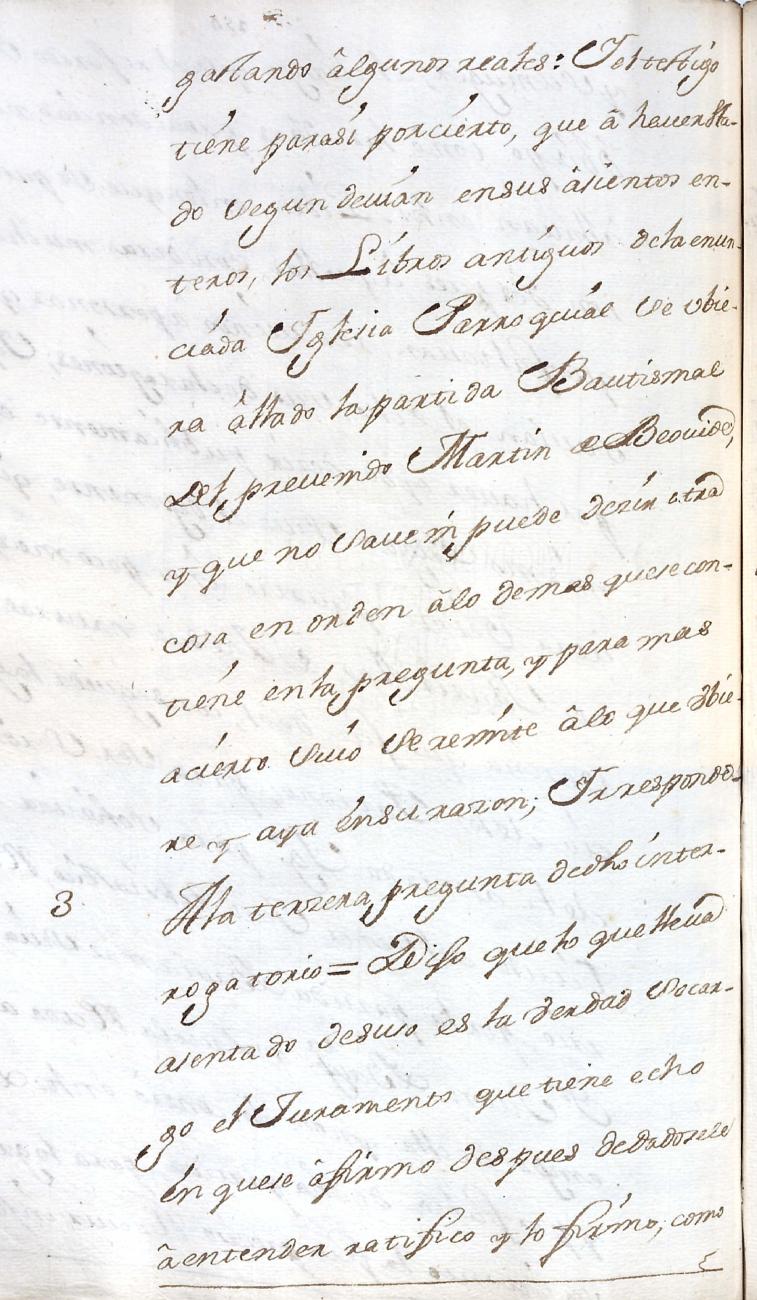 gastando âlgunos reales: I el testigo
tiéne parasí porciérto, que â haver esta-
do segun devían ensus âsientos en-
teros, los Líbros antíguos dela enun-
ciáda Iglesia Parroquiál se ubie-
ra âllado la partida Bautismal
Del prevenido Martin de Beovide,
y que no save ni puede dezir otra
cosa en orden âlo demas quese con-
tiéne enla pregunta, y para mas
aciérto suio se remite âlo que ubie-
re y aya ensu razon; I responde
3 Ala terzera pregunta de dho inter-
rogatorio = Dijo que lo que lleva
asentado desuso es la verdad socar-
go el Juramento que tiene echo
en quese âfirmo despues dedadosele
â entender ratifico y lo firmo, como